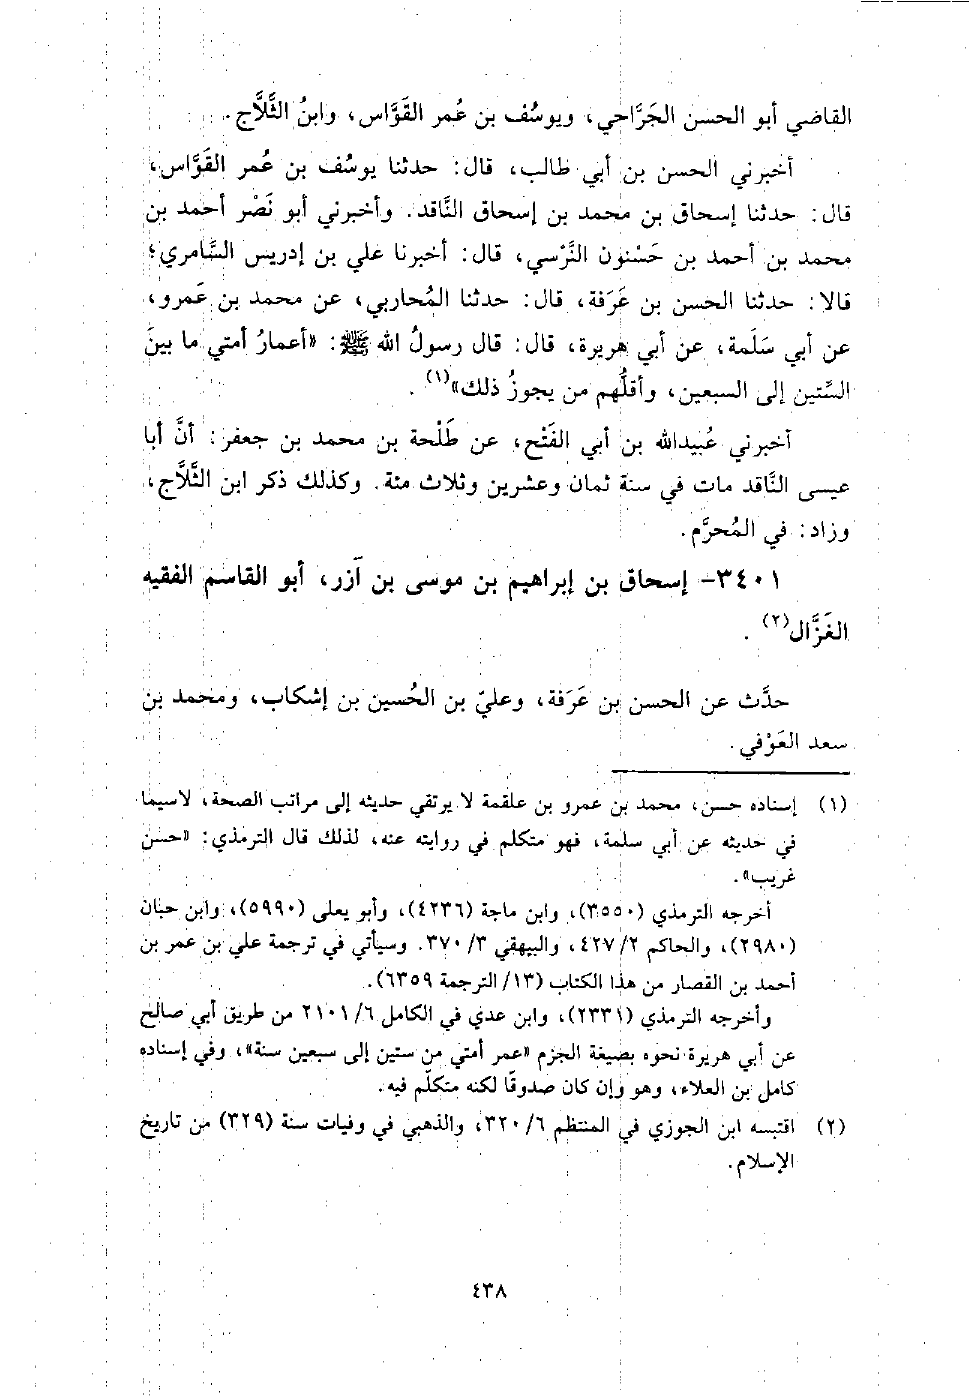 القاضي أبو الحسن الجَرَّاحي، ويوسُف بن عُمر القَوَّاس، وابنُ الثَّلَّاج.
أخبرني الحسن بن أبي طالب، قال: حدثنا يوسُف بن عُمر القَوَّاس،
قال: حدثنا إسحاق بن محمد بن إسحاق النَّاقد. وأخبرني أبو نَصْر أحمد بن
محمد بن أحمد بن حَسْنون النَّرْسي، قال: أخبرنا علي بن إدريس السَّامري؛
قالا: حدثنا الحسن بن عَرَفة، قال: حدثنا المُحاربي، عن محمد بن عَمرو،
عن أبي سَلَمة، عن أبي هريرة، قال: قال رسولُ الله ﷺ: «أعمارُ أمتي ما بينَ
السِّتين إلى السبعين، وأقلُّهم من يجوزُ ذلك»(١).
أخبرني عُبيدالله بن أبي الفَتْح، عن طَلْحة بن محمد بن جعفر: أنَّ أبا
عيسى النَّاقد مات في سنة ثمان وعشرين وثلاث مئة. وكذلك ذكر ابن الثَّلَّاج،
وزاد: في المُحرَّم.
٣٤٠١- إسحاق بن إبراهيم بن موسى بن آزر، أبو القاسم الفقيه
الغَزَّال(٢).
حدَّث عن الحسن بن عَرَفة، وعليّ بن الحُسين بن إشكاب، ومحمد بن
سعد العَوْفي.
(١) إسناده حسن، محمد بن عمرو بن علقمة لا يرتقي حديثه إلى مراتب الصحة، لاسيما
في حديثه عن أبي سلمة، فهو متكلم في روايته عنه، لذلك قال الترمذي: «حسن
غريب».
أخرجه الترمذي (٣٥٥٠)، وابن ماجة (٤٢٣٦)، وأبو يعلى (٥٩٩٠)، وابن حبان
(٢٩٨٠)، والحاكم ٢/ ٤٢٧، والبيهقي ٣/ ٣٧٠. وسيأتي في ترجمة علي بن عمر بن
أحمد بن القصار من هذا الكتاب (١٣/ الترجمة ٦٣٥٩).
وأخرجه الترمذي (٢٣٣١)، وابن عدي في الكامل ٦/ ٢١٠١ من طريق أبي صالح
عن أبي هريرة نحوه بصيغة الجزم «عمر أمتي من ستين إلى سبعين سنة»، وفي إسناده
كامل بن العلاء، وهو وإن كان صدوقًا لكنه متكلّم فيه.
(٢) اقتبسه ابن الجوزي في المنتظم ٦/ ٣٢٠، والذهبي في وفيات سنة (٣٢٩) من تاريخ
الإسلام.
٤٣٨